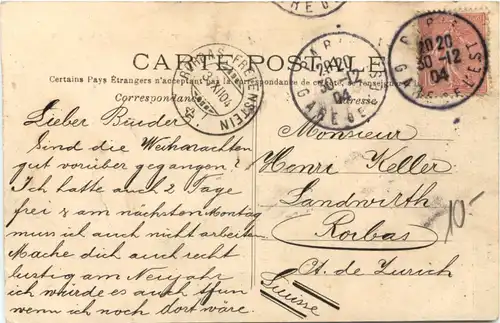 CARTE POSTALE
Certains Pays Étrangers n'acceptant pas la correspondance de ce côté, se renseigner
Correspondance
Adresse
PARIS
20 20
30 -12
04
GARE DE L'EST
PARIS
20 20
30 -12
04
GARE DE
RORBAS-FREIENSTEIN
XII 04
Lieber Bruder
Sind die Weihnachten
gut vorüber gegangen?
Ich hatte auch 2 Tage
frei & am nächsten Montag
muss ich auch nicht arbeiten
Mache dich auch recht
lustig am Neujahr
ich würde es auch thun
wenn ich noch dort wäre.
Monsieur
Henri Keller
Landwirth
Rorbas
Ct. de Zurich
Suisse
10-